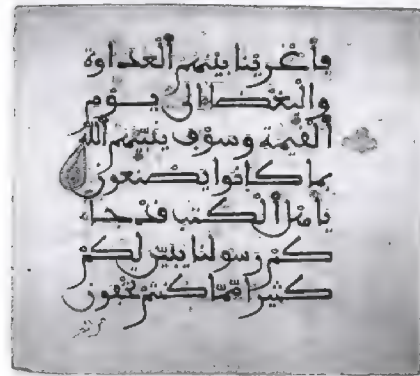 فأغرينا بينهم ٱلعداوة
والبغضا الى يوم
ٱلقيمة وسوف ينبيهم ٱلله
بما كانوا يصنعون
يأهل ٱلكتب قد جا
كم رسولنا يبين لكم
كثيرا مما كنتم تخفون